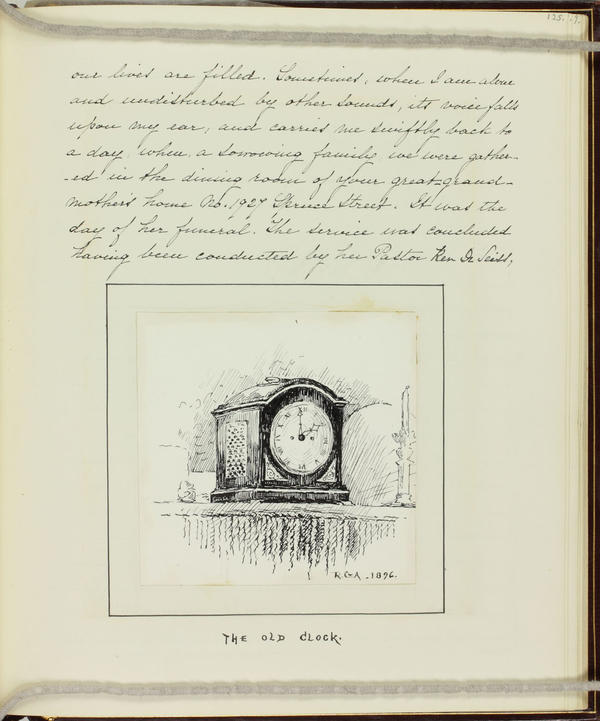 125.
our lives are filled. Sometimes, when I am alone
and undisturbed by other sounds, its voice falls
upon my ear, and carries me swiftly back to
a day, when, a sorrowing family, we were gather-
-ed in the dining room of your great-grand-
mother's home No. 1927 Spruce Street. It was the
day of her funeral. The service was concluded
having been conducted by her Pastor Rev Dr Seiss,
XII
R.G.A. - 1896.
THE OLD CLOCK.